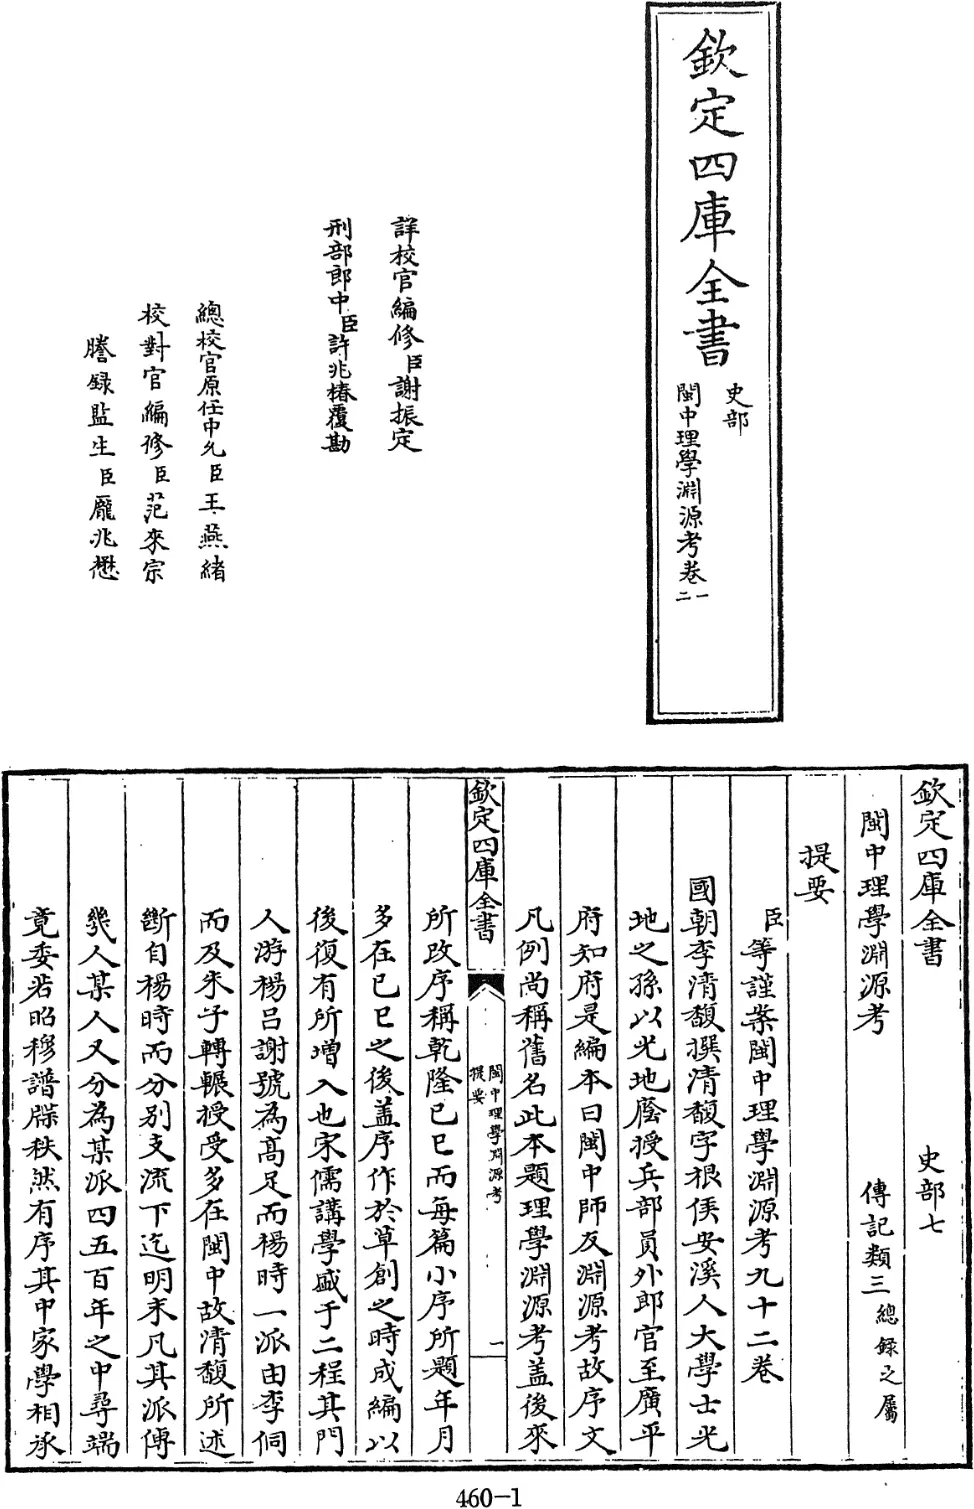 欽定四庫全書
史部
閩中理學淵源考卷一
二
詳校官編修臣謝振定
刑部郎中臣許兆椿覆勘
總校官原任中允臣王燕緒
校對官編修臣范來宗
謄錄監生臣龎兆懋
欽定四庫全書 史部七
閩中理學淵源考 傳記類三總錄之屬
提要
臣等謹案閩中理學淵源考九十二卷
國朝李清馥撰清馥字根侯安溪人大學士光
地之孫以光地廕授兵部員外郎官至廣平
府知府是編本曰閩中師友淵源考故序文
凡例尚稱舊名此本題理學淵源考盖後來
欽定四庫全書
閩中理學淵源考
提要
一
所改序稱乾隆己巳而每篇小序所題年月
多在己巳之後盖序作於草創之時成編以
後復有所增入也宋儒講學盛于二程其門
人游楊呂謝號為高足而楊時一派由李侗
而及朱子轉輾授受多在閩中故清馥所述
斷自楊時而分别支流下迄明末凡其派傳
幾人某人又分為某派四五百年之中尋端
竟委若昭穆譜牒秩然有序其中家學相承
460-1